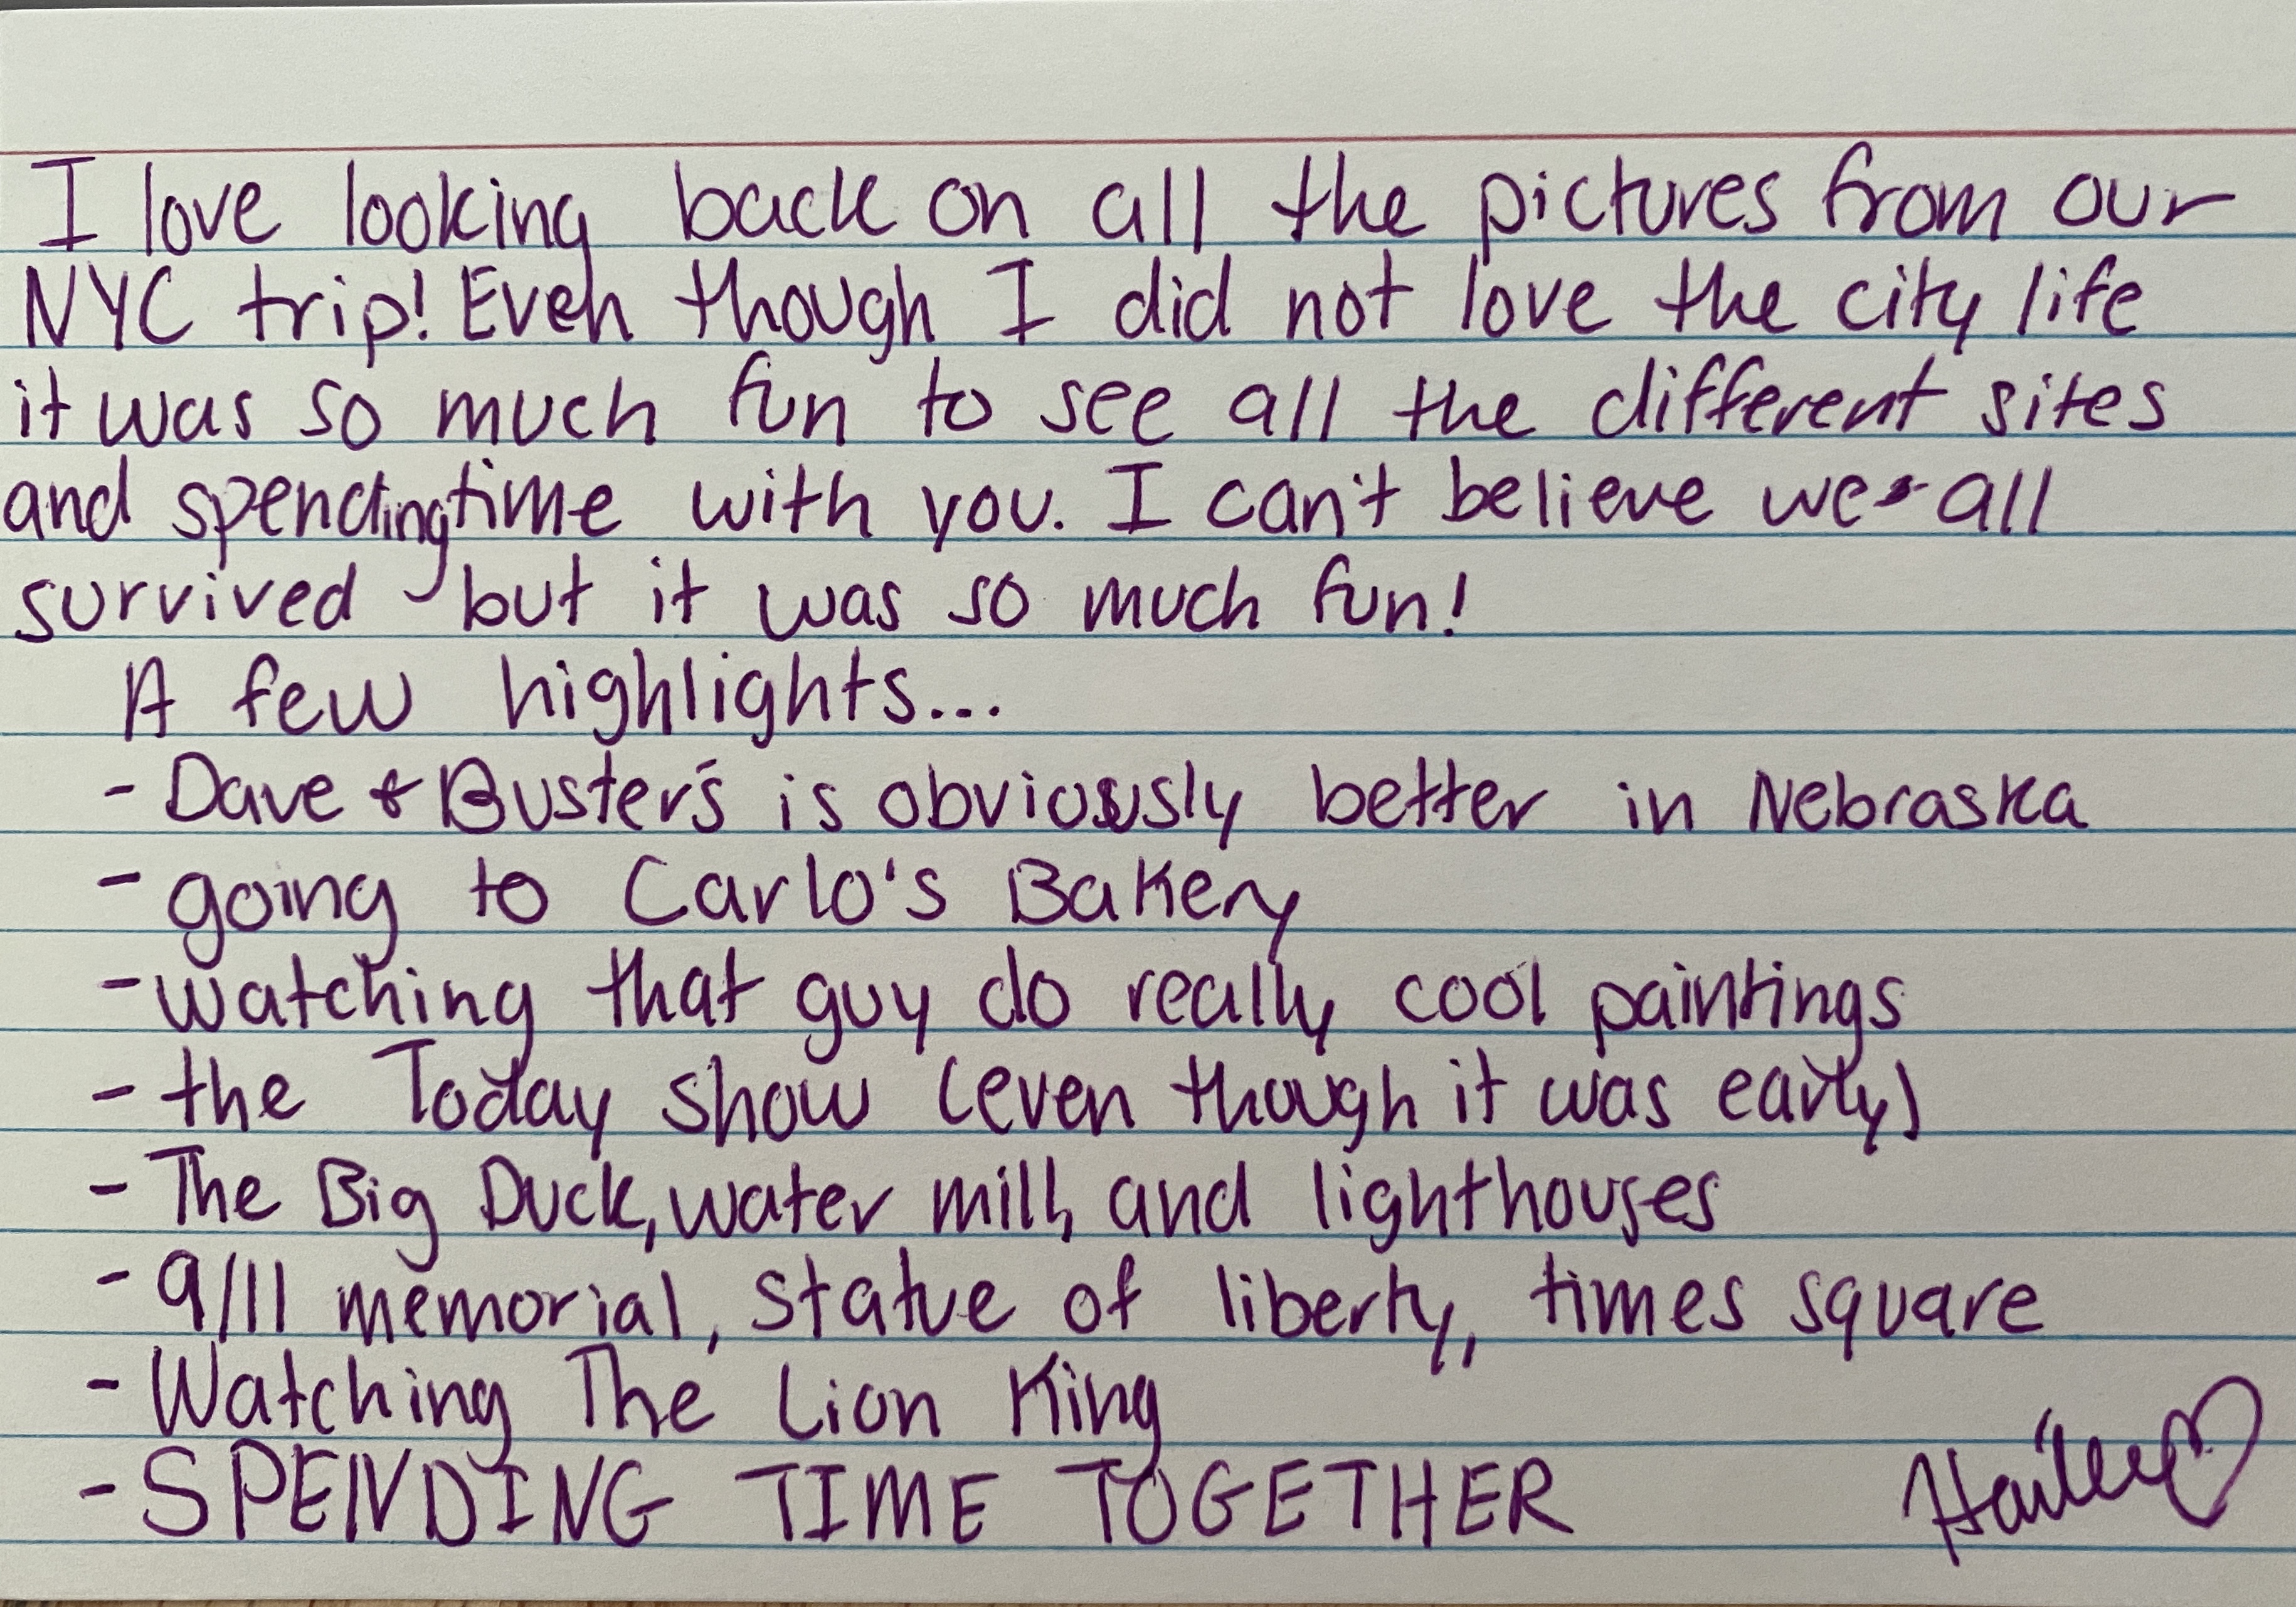 I love looking back on all the pictures from our
NYC trip! Even though I did not love the city life
it was so much fun to see all the different sites
and spending time with you. I can't believe we all
survived but it was so much fun!
A few highlights...
- Dave & Buster's is obviously better in Nebraska
- going to Carlo's Bakery
- watching that guy do really cool paintings
- the Today show (even though it was early)
- The Big Duck, water mill, and lighthouses
- 9/11 memorial, statue of liberty, times square
- Watching The Lion King
- SPENDING TIME TOGETHER
Hailey♡